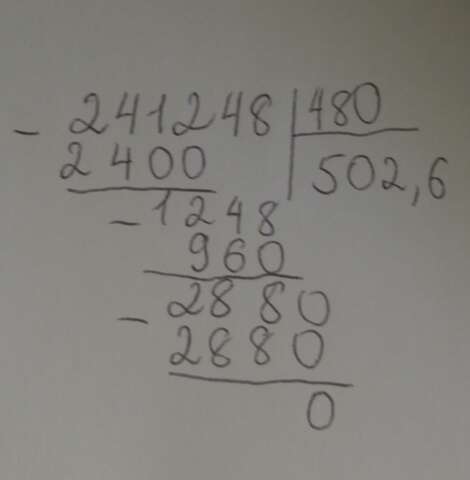 - 241248 | 480
2400 | 502,6
- 1248
960
- 2880
2880
0